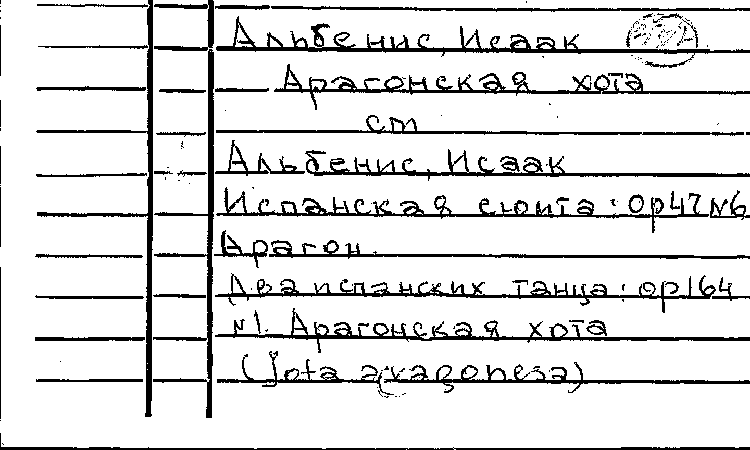 Альбенис, Исаак
Арагонская хота
см
Альбенис, Исаак
Испанская сюита: op47 №6
Арагон.
Два испанских танца: op164
№1. Арагонская хота
(Jota aragonesa)